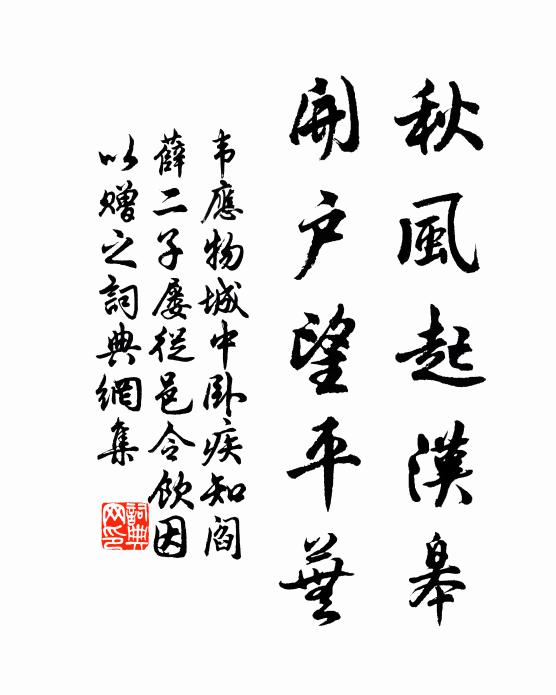 秋風起漢皋
開戶望平蕪
韦應物城中卧疾知閻
薛二子屡從邑令飲因
以赠之詞典網集
詞典网印